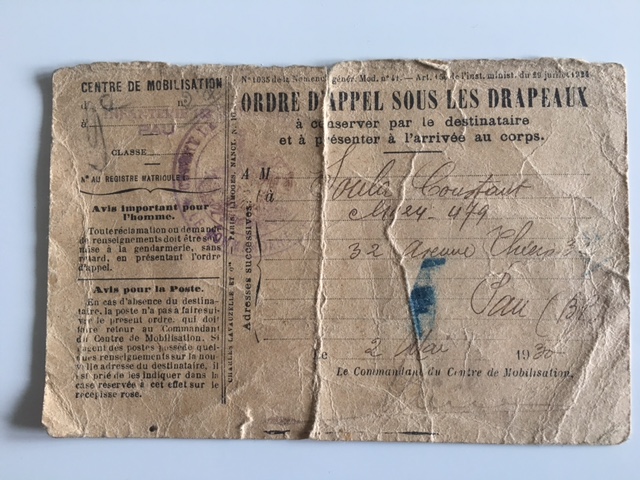 CENTRE DE MOBILISATION
d
à
INFANTERIE
PAU
CLASSE
N° AU REGISTRE MATRICULE
Avis important pour
l'homme.
Toute réclamation ou demande
de renseignements doit être
mise à la gendarmerie, sans
retard, en présentant l'ordre
d'appel.
Avis pour la Poste.
En cas d'absence du destina-
taire, la poste n'a pas à faire sui-
vre le présent ordre, qui doit
faire retour au Commandant
du Centre de Mobilisation. Si
l'agent des postes possède quel-
ques renseignements sur la nou-
velle adresse du destinataire, il
est prié de les indiquer dans la
case réservée à cet effet sur le
récépissé rose.
CHARLES LAVAUZELLE ET Cie PARIS, LIMOGES, NANCY
N° 1035 de la Nomencl. génér. Mod. n° 41. — Art. de l'inst. minist. du juillet
ORDRE D'APPEL SOUS LES DRAPEAUX
à conserver par le destinataire
et à présenter à l'arrivée au corps.
A M
à
Adresses successives.
Constant
479
32 Avenue Thiers
Pau
Le 2 Mai 1930
Le Commandant du Centre de Mobilisation,